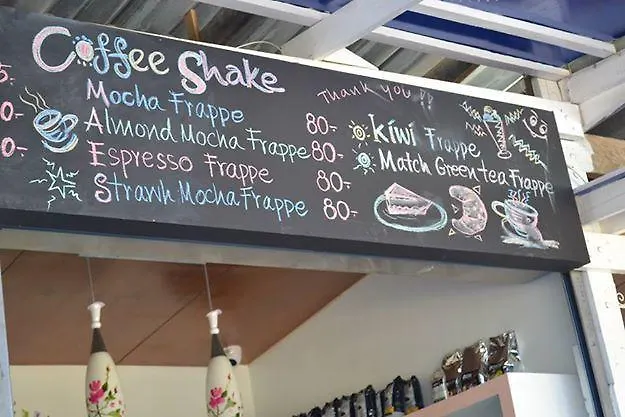 Coffee Shake
Mocha Frappe 80.-
Almond Mocha Frappe 80.-
Espresso Frappe 80.-
Strawh Mocha Frappe 80.-
Thank you
Kiwi Frappe
Match Green tea Frappe
5.
0.-
0.-